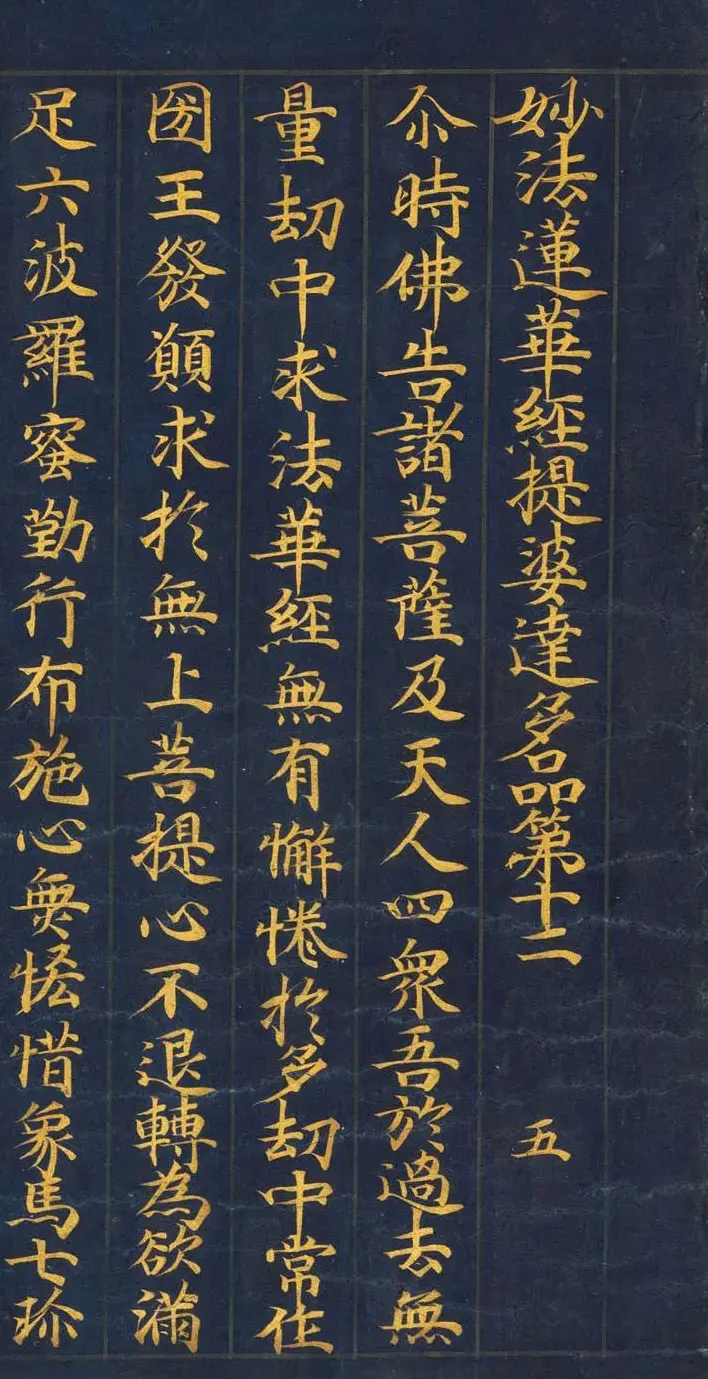 妙法蓮華經提婆達多品第十二 五
尒時佛告諸菩薩及天人四眾吾於過去無
量劫中求法華經無有懈惓於多劫中常作
國王發願求於無上菩提心不退轉為欲滿
足六波羅蜜勤行布施心無悋惜象馬七珎